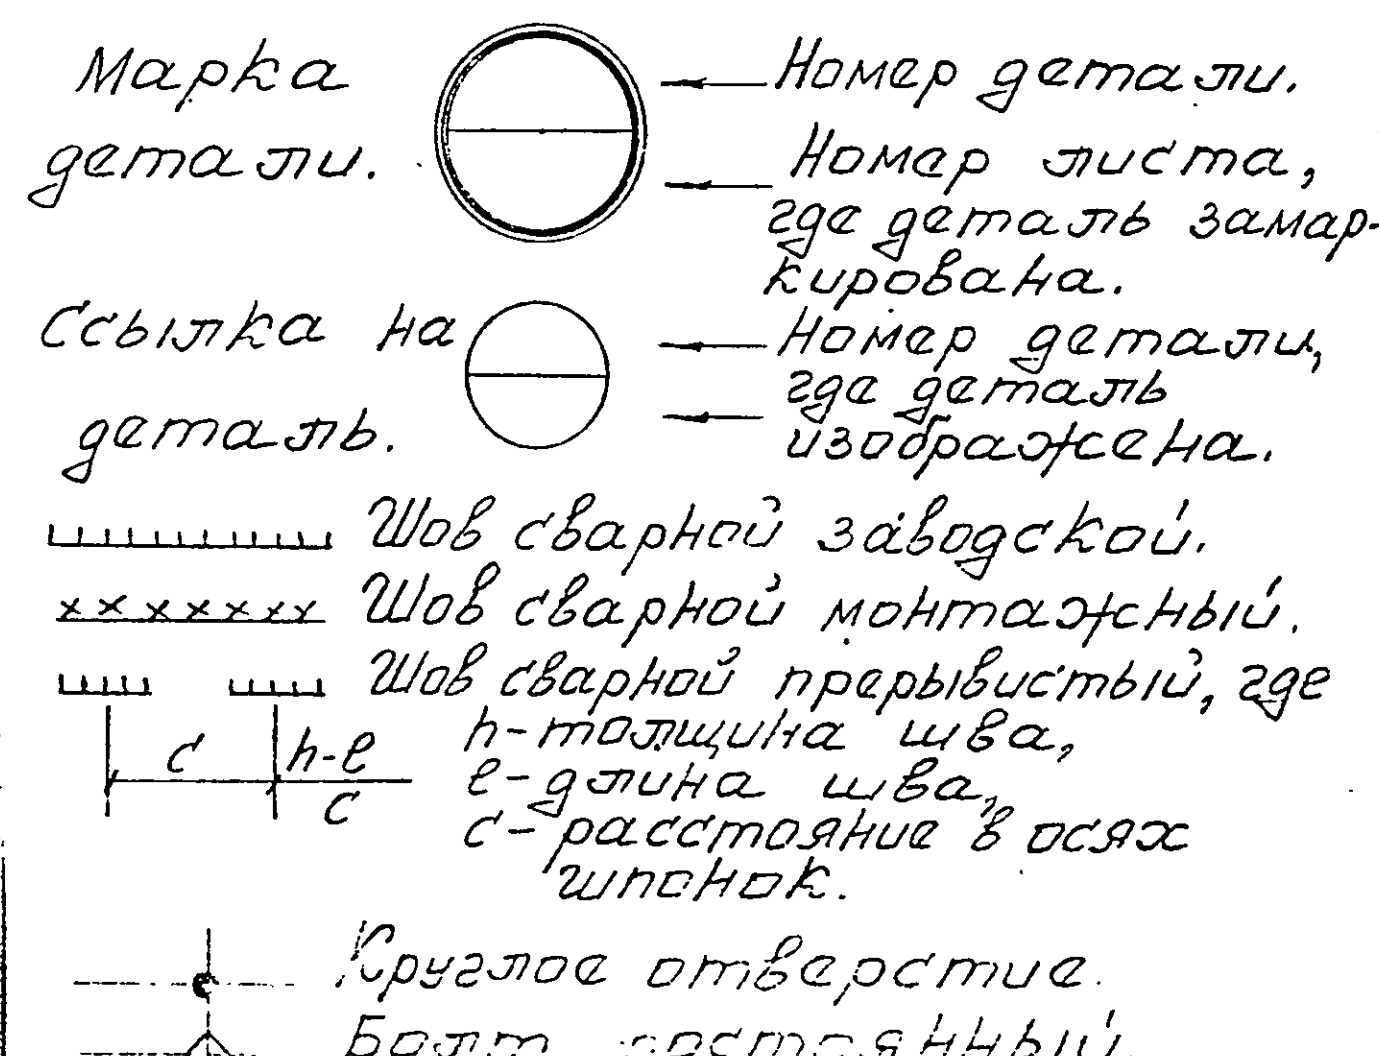 Марка
детали.
Номер детали.
Номер листа,
где деталь замар-
кирована.
Ссылка на
деталь.
Номер детали,
где деталь
изображена.
Шов сварной заводской.
Шов сварной монтажный.
Шов сварной прерывистый, где
h-толщина шва,
ℓ-длина шва,
с-расстояние в осях
шпонок.
с h-ℓ
с
Круглое отверстие.
Болт постоянный.